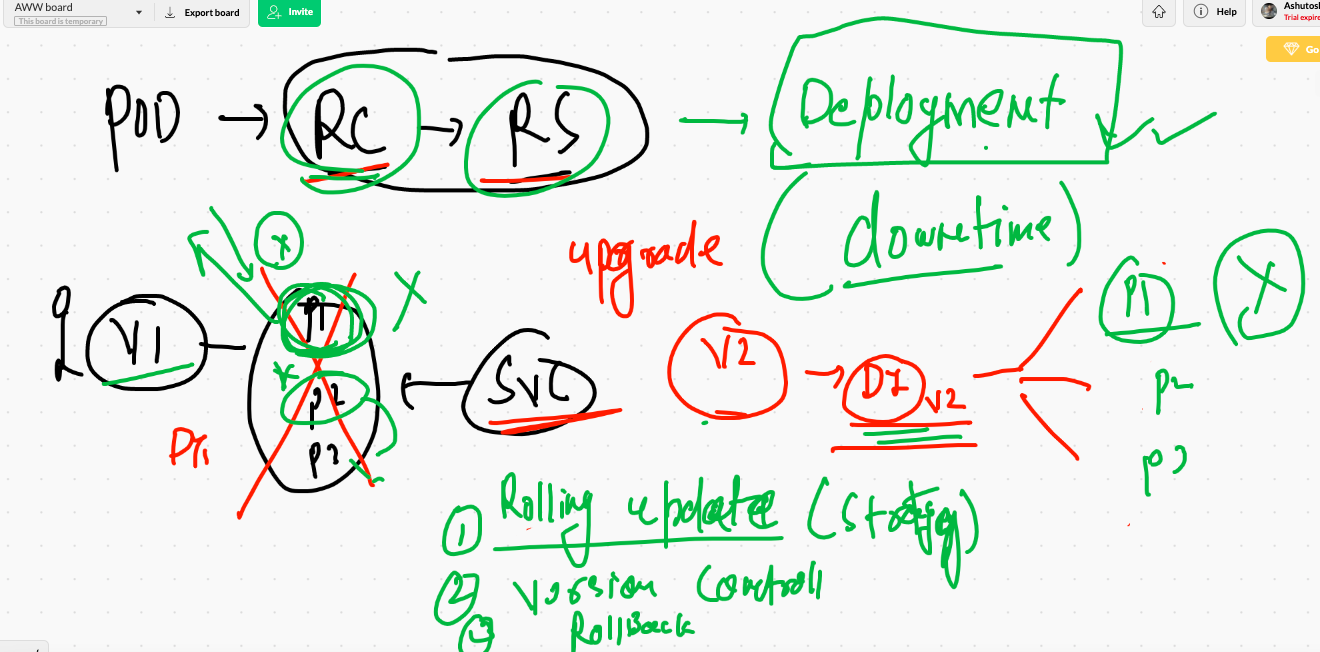 AWW board
This board is temporary
Export board
Invite
Help
Ashutosh
Trial expire
Go
POD → RC → RS → Deployment
(downtime)
upgrade
V1
P1
P2
P3
X
X
X
SVC
V2 → D1 V2
P1
P2
P3
X
① Rolling update (Strategy)
② Version Controll
③ RollBack